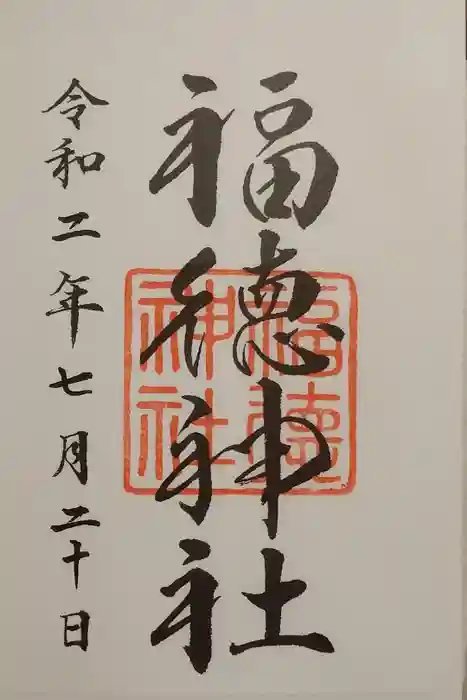 福徳神社
福徳
神社
令和二年七月二十日